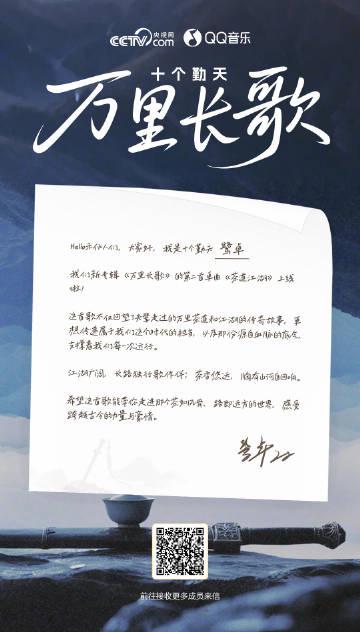 CCTV 央视网 .com QQ音乐
十个勤天
万里长歌
Hello禾伙人们，大家好，我是十个勤天 鹭卓
我们新专辑《万里长歌》的第二首单曲《茶道江湖》上线
啦！
这首歌不仅回望了先辈走过的万里茶道和江湖的传奇故事，更
想传递属于我们这个时代的担当，以及那份源自血脉的底气，
支撑着我们每一次远行。
江湖广阔，长路独行歌作伴；茶香悠远，胸有山河自回响。
希望这首歌能带你走进那个茶知风骨、路即远方的世界，感受
跨越古今的力量与豪情。
前往接收更多成员来信